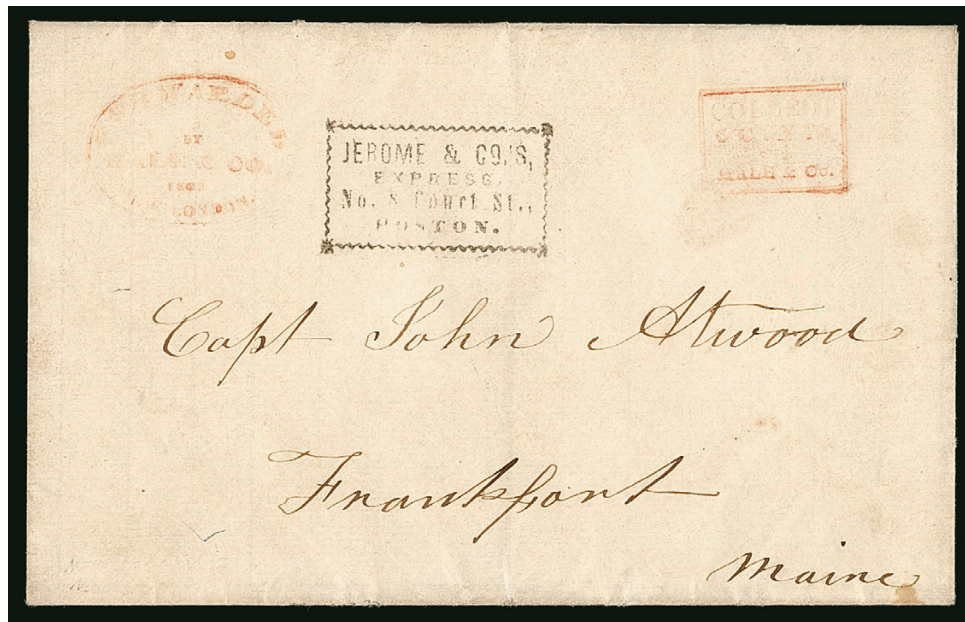 FORWARDED
BY
HALE & CO.
FROM
NEW LONDON.
JEROME & CO.'S,
EXPRESS,
No. 8 Court St.,
BOSTON.
COLLECT
CENTS
HALE & Co.
Capt John Atwood
Frankfort
Maine